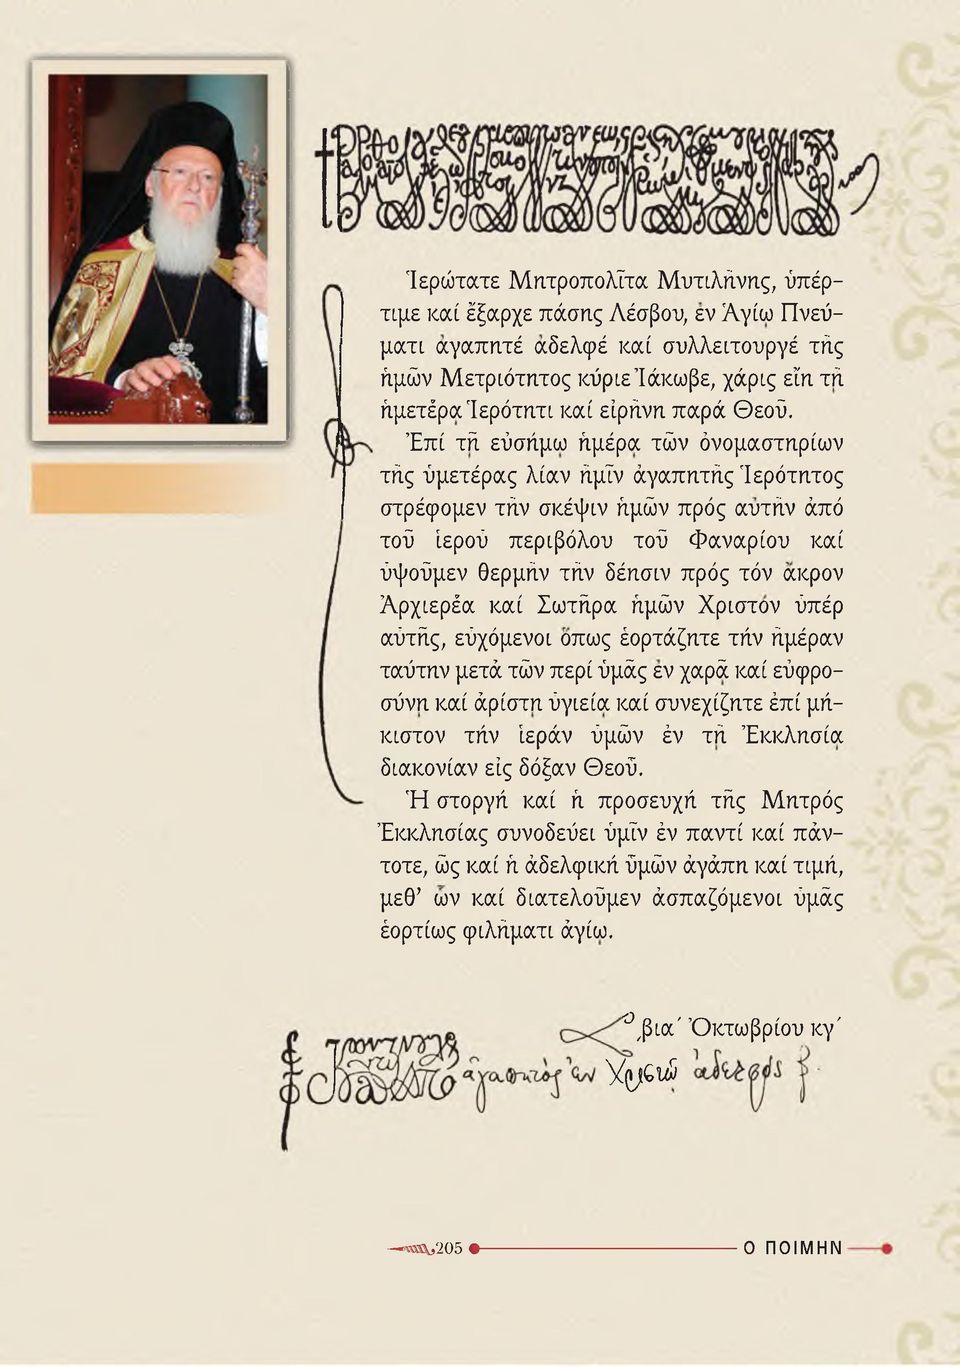 Ἱερώτατε Μητροπολῖτα Μυτιλήνης, ὑπέρ-
τιμε καί ἔξαρχε πάσης Λέσβου, ἐν Ἁγίῳ Πνεύ-
ματι ἀγαπητέ ἀδελφέ καί συλλειτουργέ τῆς
ἡμῶν Μετριότητος κύριε Ἰάκωβε, χάρις εἴη τῇ
ἡμετέρᾳ Ἱερότητι καί εἰρήνη παρά Θεοῦ.
Ἐπί τῇ εὐσήμῳ ἡμέρᾳ τῶν ὀνομαστηρίων
τῆς ὑμετέρας λίαν ἡμῖν ἀγαπητῆς Ἱερότητος
στρέφομεν τήν σκέψιν ἡμῶν πρός αὐτήν ἀπό
τοῦ ἱεροῦ περιβόλου τοῦ Φαναρίου καί
ὑψοῦμεν θερμήν τήν δέησιν πρός τόν ἄκρον
Ἀρχιερέα καί Σωτῆρα ἡμῶν Χριστόν ὑπέρ
αὐτῆς, εὐχόμενοι ὅπως ἑορτάζητε τήν ἡμέραν
ταύτην μετά τῶν περί ὑμᾶς ἐν χαρᾷ καί εὐφρο-
σύνῃ καί ἀρίστῃ ὑγιείᾳ καί συνεχίζητε ἐπί μή-
κιστον τήν ἱεράν ὑμῶν ἐν τῇ Ἐκκλησίᾳ
διακονίαν εἰς δόξαν Θεοῦ.
Ἡ στοργή καί ἡ προσευχή τῆς Μητρός
Ἐκκλησίας συνοδεύει ὑμῖν ἐν παντί καί πάν-
τοτε, ὡς καί ἡ ἀδελφική ὑμῶν ἀγάπη καί τιμή,
μεθ’ ὧν καί διατελοῦμεν ἀσπαζόμενοι ὑμᾶς
ἑορτίως φιλήματι ἁγίῳ.
͵βια΄ Ὀκτωβρίου κγ΄
ἀγαπητός ἐν Χριστῷ ἀδελφός
205 Ο ΠΟΙΜΗΝ